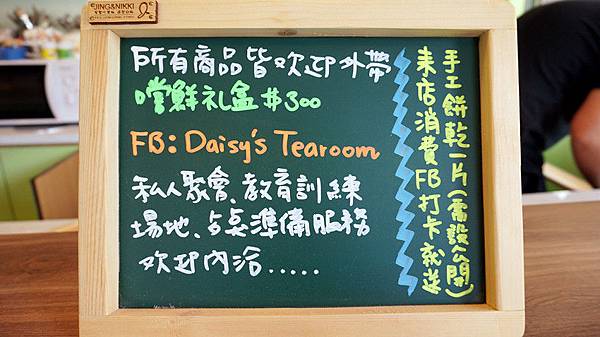 JING&NIKKI
所有商品皆歡迎外帶
嚐鮮礼盒 #300
FB: Daisy's Tearoom
私人聚會、教育訓練
場地、點準備服務
欢迎內洽.....
來店消費FB打卡就送
手工餅乾一片(需設公開)